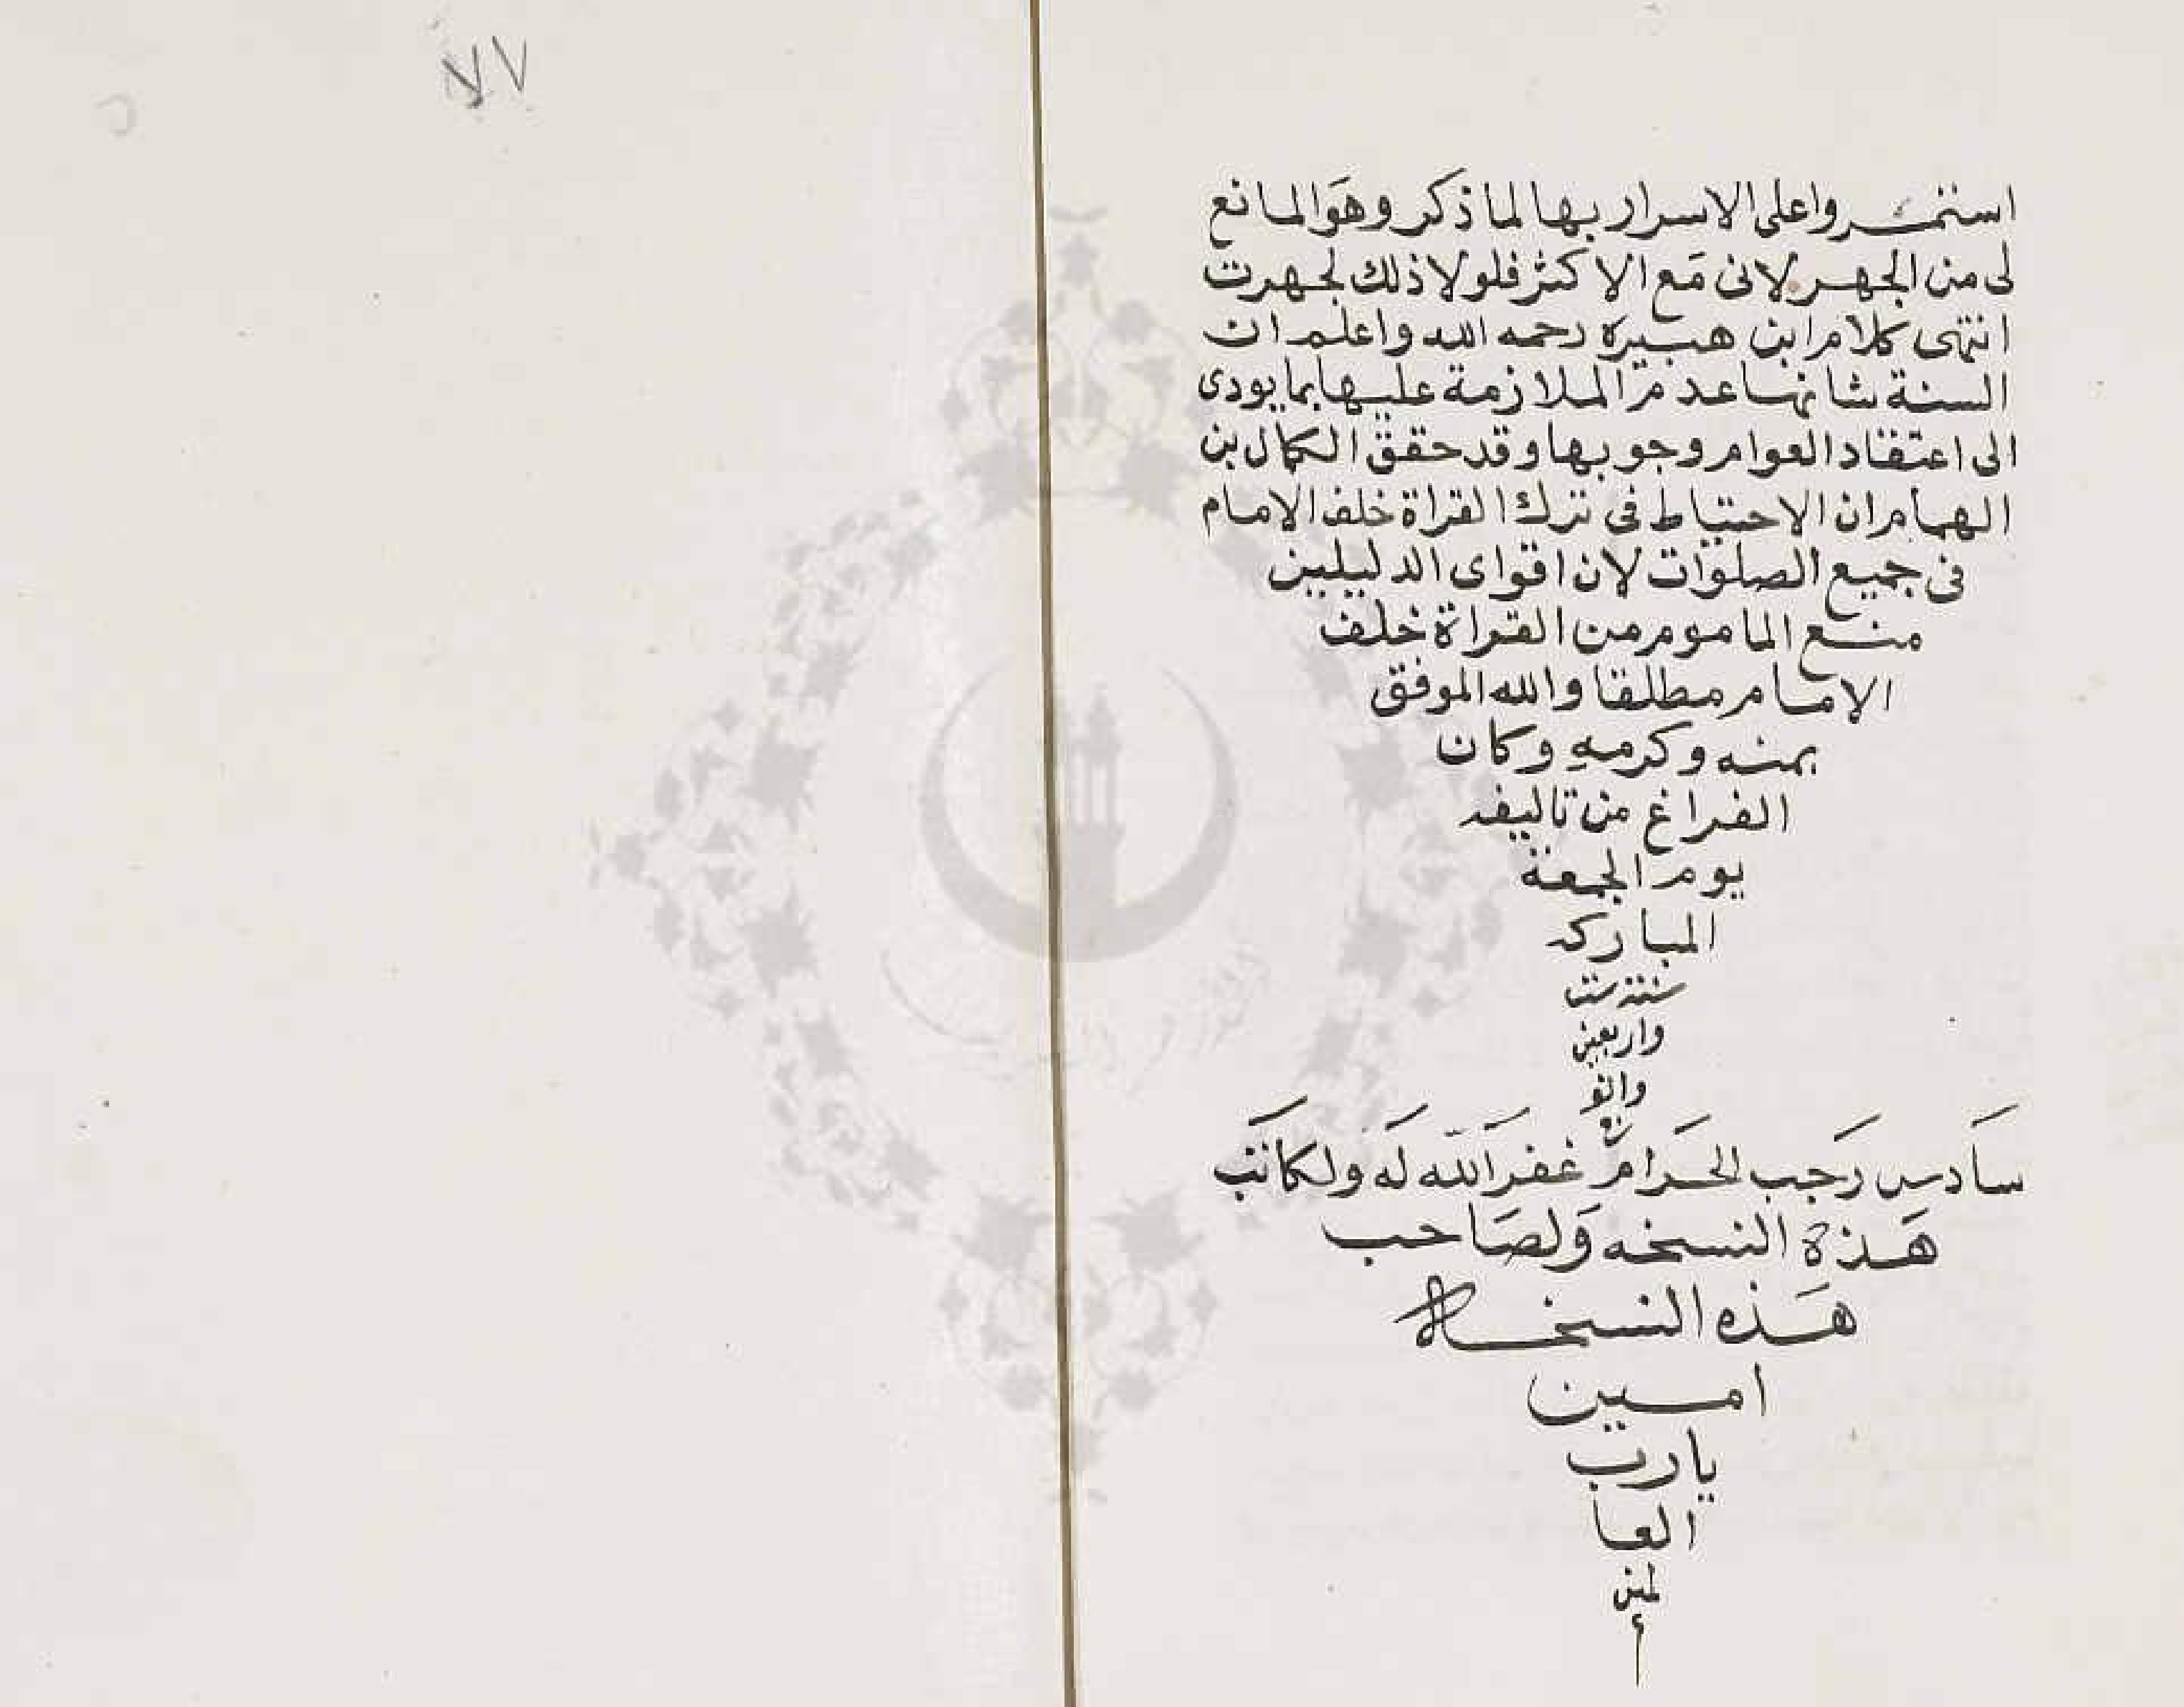 استمروا على الاسرار بها لما ذكر وهو المانع
لى من الجهر لانى مع الاكثر فلولا ذلك لجهرت
انتهى كلام ابن هبيرة رحمه الله واعلم ان
السنة شانها عدم الملازمة عليها بما يودى
الى اعتقاد العوام وجوبها وقد حقق الكمال بن
الهمام ان الاحتياط فى ترك القراة خلف الامام
فى جميع الصلوات لان اقواى الدليلين
منع الماموم من القراة خلف
الامام مطلقا والله الموفق
بمنه وكرمه وكان
الفراغ من تاليفه
يوم الجمعة
المباركه
سنة ست
واربعين
والف
سادس رجب الحرام غفر الله له ولكاتب
هذة النسخه ولصاحب
هذه النسخه
امين
يارب
العا
لمين